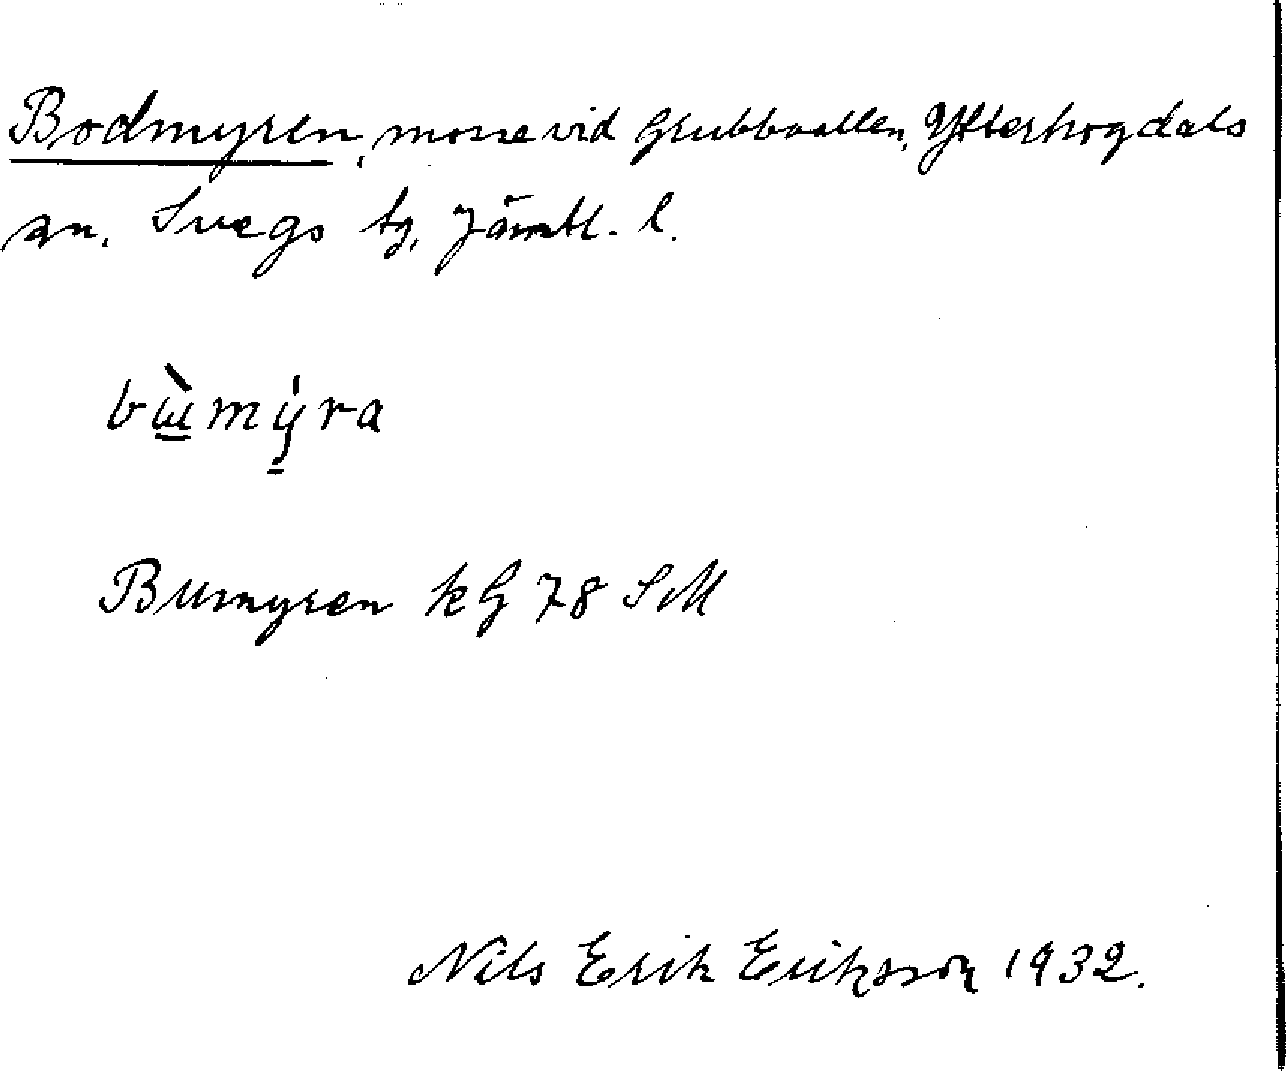 Bodmyren, mosse vid Grubbvallen, Ytterhogdals
sn. Svegs tg, Jämtl. l.
bɯ̀mýra
Bumyren kG 78 SM
Nils Erik Eriksson 1932.